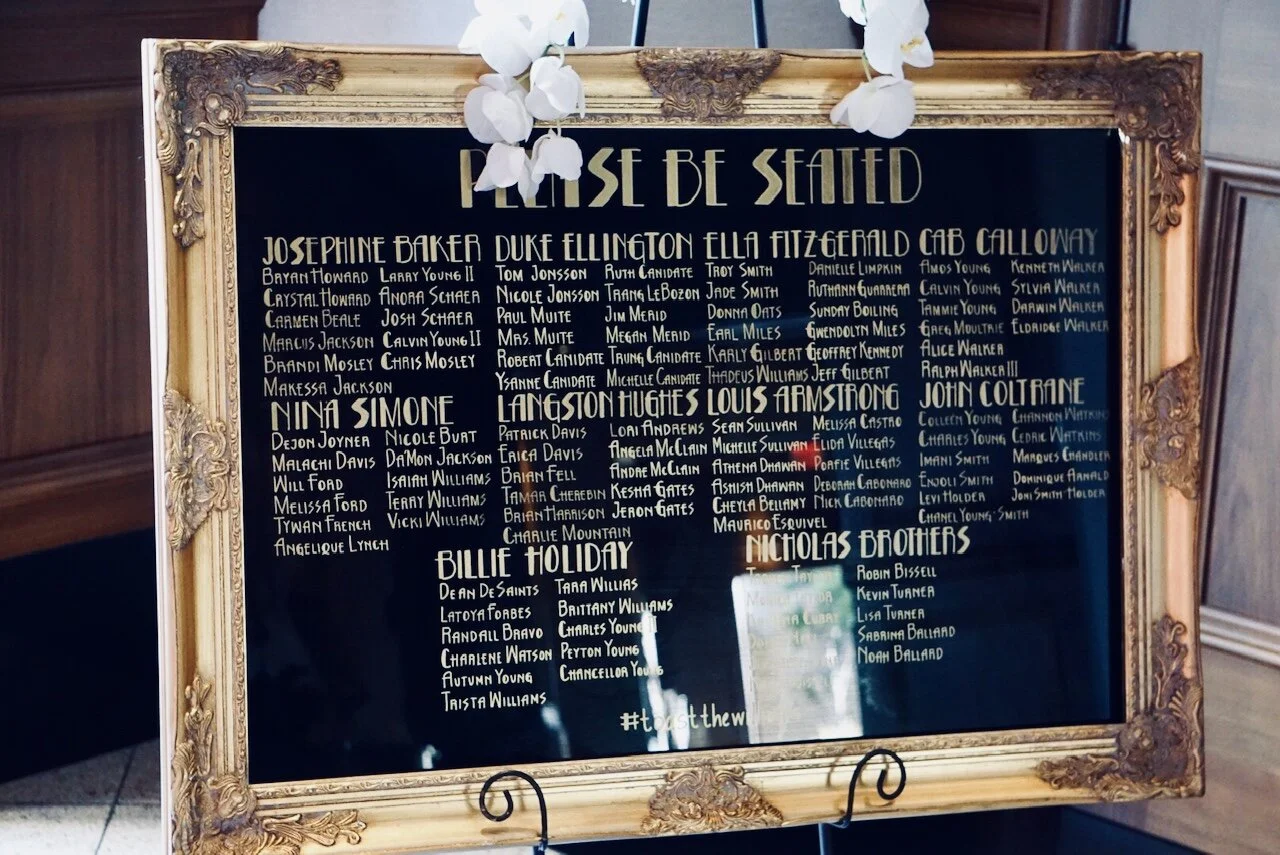 PLEASE BE SEATED
JOSEPHINE BAKER
Bryan Howard
Crystal Howard
Carmen Beale
Marcus Jackson
Brandi Mosley
Makessa Jackson
Larry Young II
Anora Schaer
Josh Schaer
Calvin Young II
Chris Mosley
DUKE ELLINGTON
Tom Jonsson
Nicole Jonsson
Paul Muite
Mrs. Muite
Robert Canidate
Ysanne Canidate
Ruth Canidate
Trang LeBozon
Jim Merid
Megan Merid
Trung Canidate
Michelle Canidate
ELLA FITZGERALD
Troy Smith
Jade Smith
Donna Oats
Earl Miles
Karly Gilbert
Thadeus Williams
Danielle Limpkin
Ruthann Guarrera
Sunday Boiling
Gwendolyn Miles
Geoffrey Kennedy
Jeff Gilbert
CAB CALLOWAY
Amos Young
Calvin Young
Tammie Young
Greg Moultrie
Alice Walker
Ralph Walker III
Kenneth Walker
Sylvia Walker
Darwin Walker
Eldridge Walker
NINA SIMONE
Dejon Joyner
Malachi Davis
Will Ford
Melissa Ford
Tywan French
Angelique Lynch
Nicole Burt
Da'Mon Jackson
Isaiah Williams
Terry Williams
Vicki Williams
LANGSTON HUGHES
Patrick Davis
Erica Davis
Brian Fell
Tamar Cherebin
Brian Harrison
Charlie Mountain
Lori Andrews
Angela McClain
Andre McClain
Kesha Gates
Jeron Gates
LOUIS ARMSTRONG
Sean Sullivan
Michelle Sullivan
Athena Dhawan
Ashish Dhawan
Cheyla Bellamy
Maurico Esquivel
Melissa Castro
Elida Villegas
Porfie Villegas
Deborah Cabonaro
Nick Cabonaro
JOHN COLTRANE
Colleen Young
Charles Young
Imani Smith
Enjoli Smith
Levi Holder
Chanel Young-Smith
Channon Watkins
Cedric Watkins
Marques Chandler
Dominique Arnald
Joni Smith Holder
BILLIE HOLIDAY
Dean DeSaints
Latoya Forbes
Randall Bravo
Charlene Watson
Autumn Young
Trista Williams
Tara Willias
Brittany Williams
Charles Young
Peyton Young
Chancellor Young
NICHOLAS BROTHERS
Robin Bissell
Kevin Turner
Lisa Turner
Sabrina Ballard
Noah Ballard